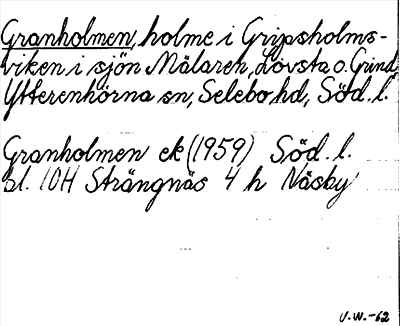 Granholmen, holme i Gripsholms-
viken i sjön Mälaren, Lövsta o. Grind,
Ytterenhörna sn, Selebo hd, Söd. l.
Granholmen ek (1959) Söd. l.
bl. 10H Strängnäs 4 h Näsby
J.W.-62